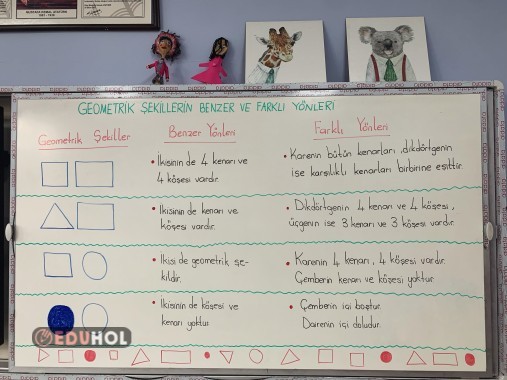 GEOMETRİK ŞEKİLLERİN BENZER VE FARKLI YÖNLERİ
Geometrik Şekiller
Benzer Yönleri
Farklı Yönleri
• İkisinin de 4 kenarı ve
4 köşesi vardır.
• Karenin bütün kenarları, dikdörtgenin
ise karşılıklı kenarları birbirine eşittir.
• İkisinin de kenarı ve
köşesi vardır.
• Dikdörtgenin 4 kenarı ve 4 köşesi,
üçgenin ise 3 kenarı ve 3 köşesi vardır.
• İkisi de geometrik şe-
kildir.
• Karenin 4 kenarı, 4 köşesi vardır.
Çemberin kenarı ve köşesi yoktur.
• İkisinin de köşesi ve
kenarı yoktur.
• Çemberin içi boştur.
Dairenin içi doludur.
EDUHOL